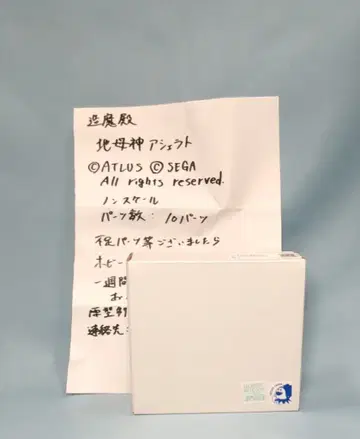 造魔殿
地母神アシェラト
©ATLUS ©SEGA
All rights reserved.
ノンスケール
パーツ数: 10パーツ
不足パーツ等ございましたら
ホビー
一週間
原型制
連絡先: